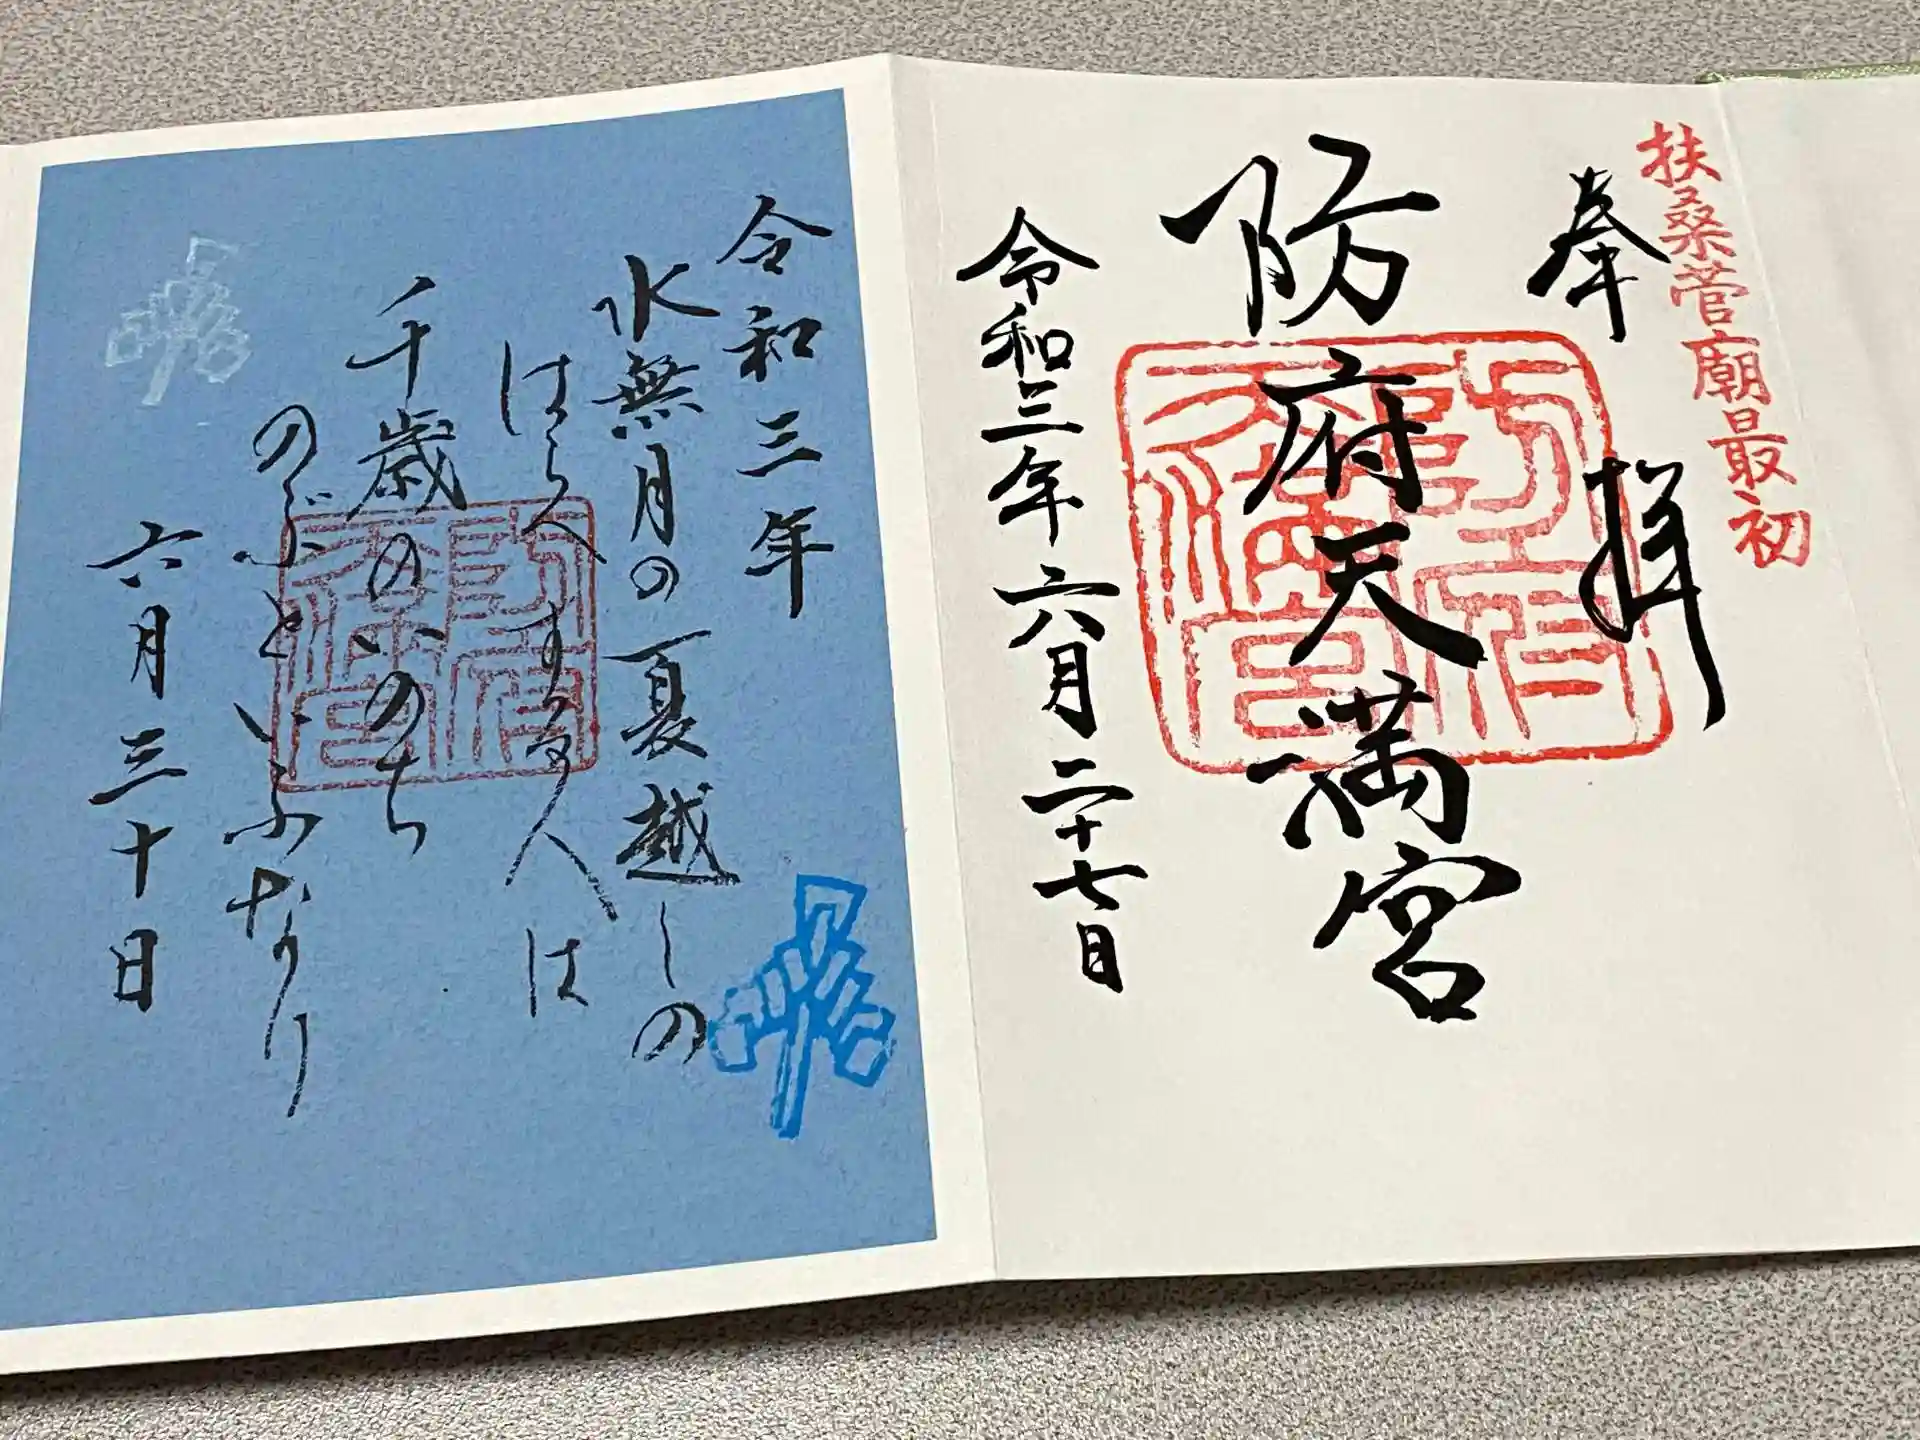 扶桑菅廟最初
奉拝
防府天満宮
令和三年六月二十七日
令和三年
水無月の夏越しの
はらへする人は
千歳のいのち
のぶといふなり
六月三十日